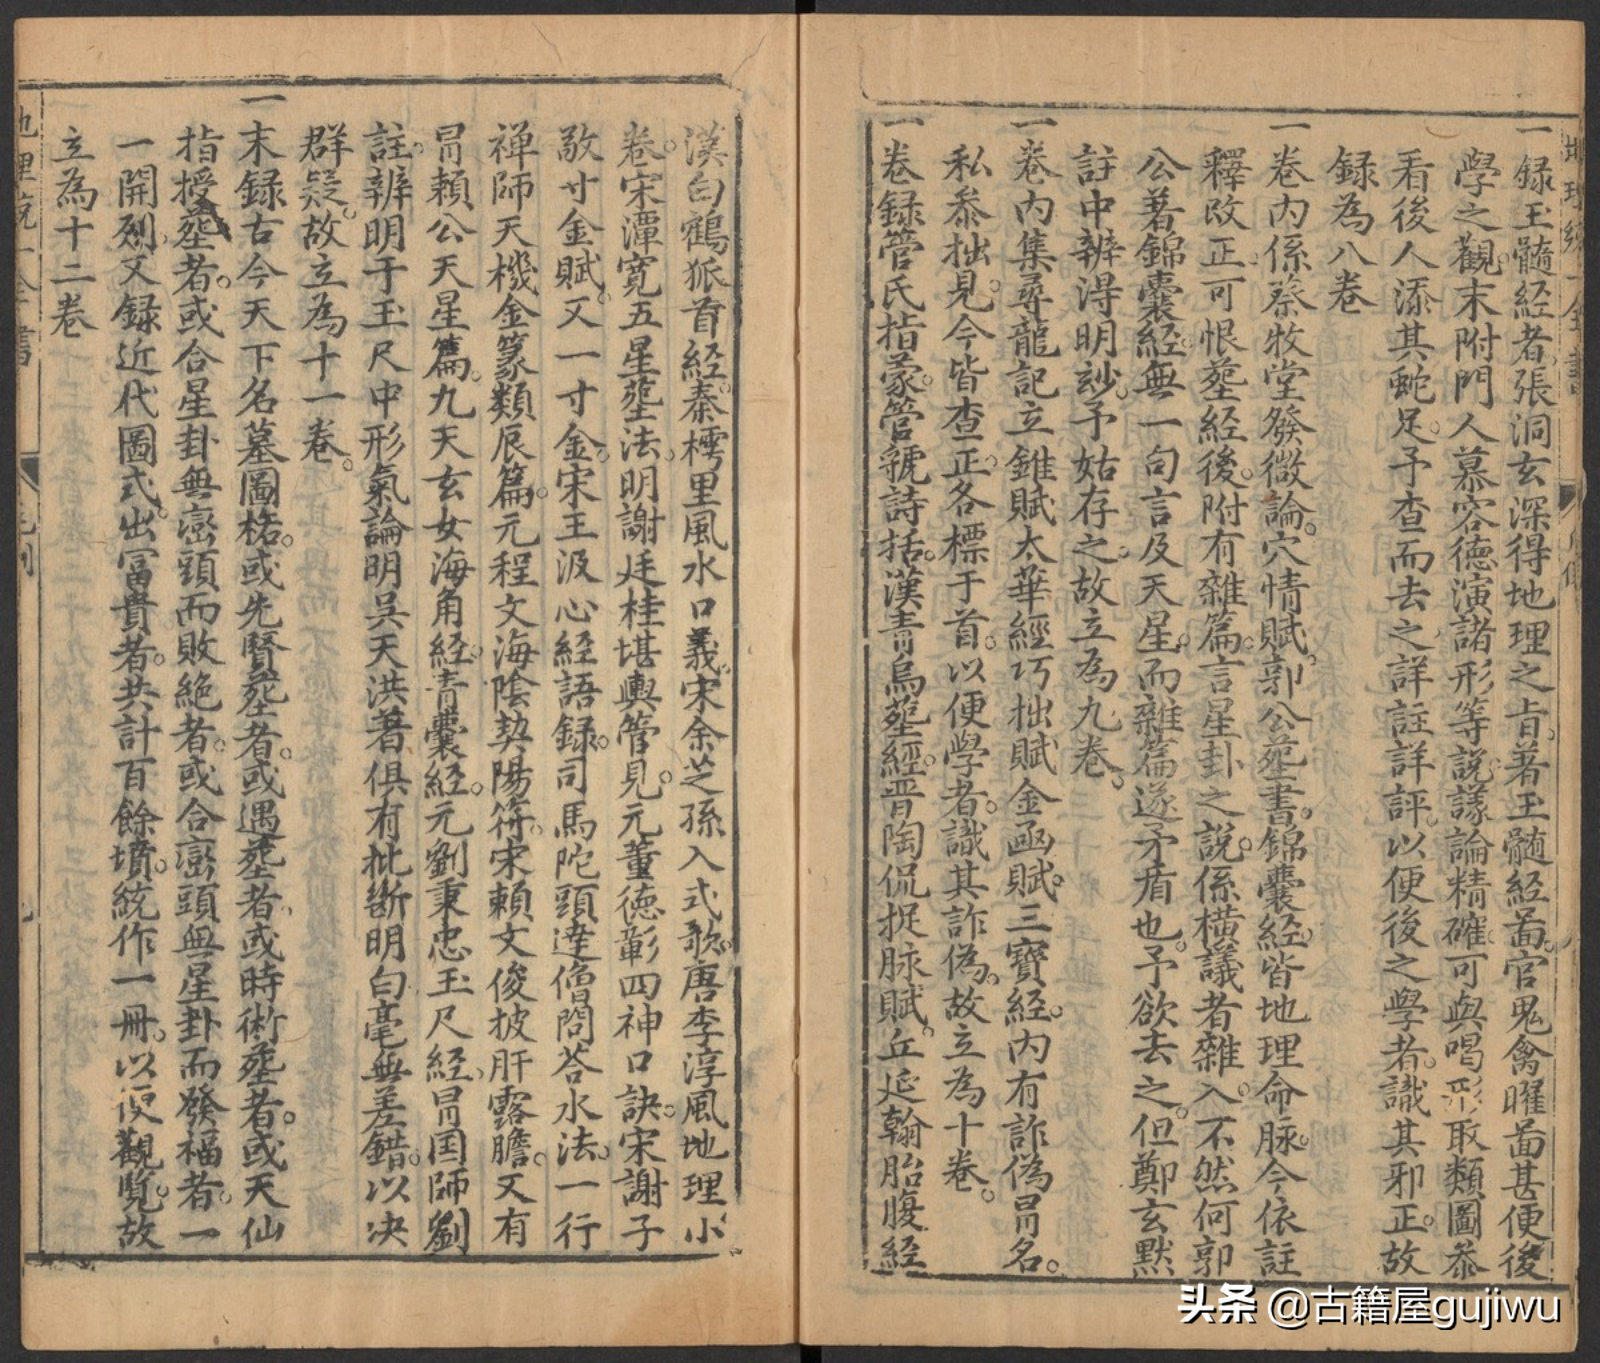 一録玉髓經者張洞玄深得地理之旨著玉髓經啚官鬼禽曜啚甚便後
學之觀末附門人慕容德演諸形等說議論精確可與喝形取類圖叅
看後人添其蛇足予查而去之詳註詳評以便後之學者識其邪正故
録為八卷
一卷內係蔡牧堂發微論穴情賦郭公塟書錦囊經皆地理命脉今依註
釋改正可恨塟經後附有雜篇言星卦之說係橫議者雜入不然何郭
公著錦囊經無一句言及天星而雜篇遂矛盾也予欲去之但鄭玄黙
註中辨淂明玅予姑存之故立為九卷
一卷內集尋龍記立錐賦太華經巧拙賦金函賦三寶經內有詐偽冐名
私叅拙見今皆查正各標于首以便學者識其詐偽故立為十卷
一卷録管氏指蒙管號詩括漢青烏塟經晋陶侃捉脉賦丘延翰胎腹經
漢白鶴狐首經秦樗里風水口義宋余芝孫入式歌唐李淳風地理小
卷宋潭寬五星塟法明謝廷桂堪輿管見元董德彰四神口訣宋謝子
敬寸金賦又一寸金宋王汲心經語録司馬陀頭逹僧問荅水法一行
禅師天機金篆類辰篇元程文海陰契陽符宋賴文俊披肝露膽又有
冐賴公天星篇九天玄女海角經青囊經元劉秉忠玉尺經冐国師劉
註辨明于玉尺中形氣論明吳天洪著俱有批断明白毫無差錯以决
群疑故立為十一卷
一末録古今天下名墓圖格或先賢塟者或遇塟者或時術塟者或天仙
指授塟者或合星卦無巒頭而敗絕者或合巒頭無星卦而發福者一
一開列又録近代圖式出富貴者共計百餘墳統作一冊以便觀覽故
立為十二卷
地理統一全書
头条 @古籍屋gujiwu